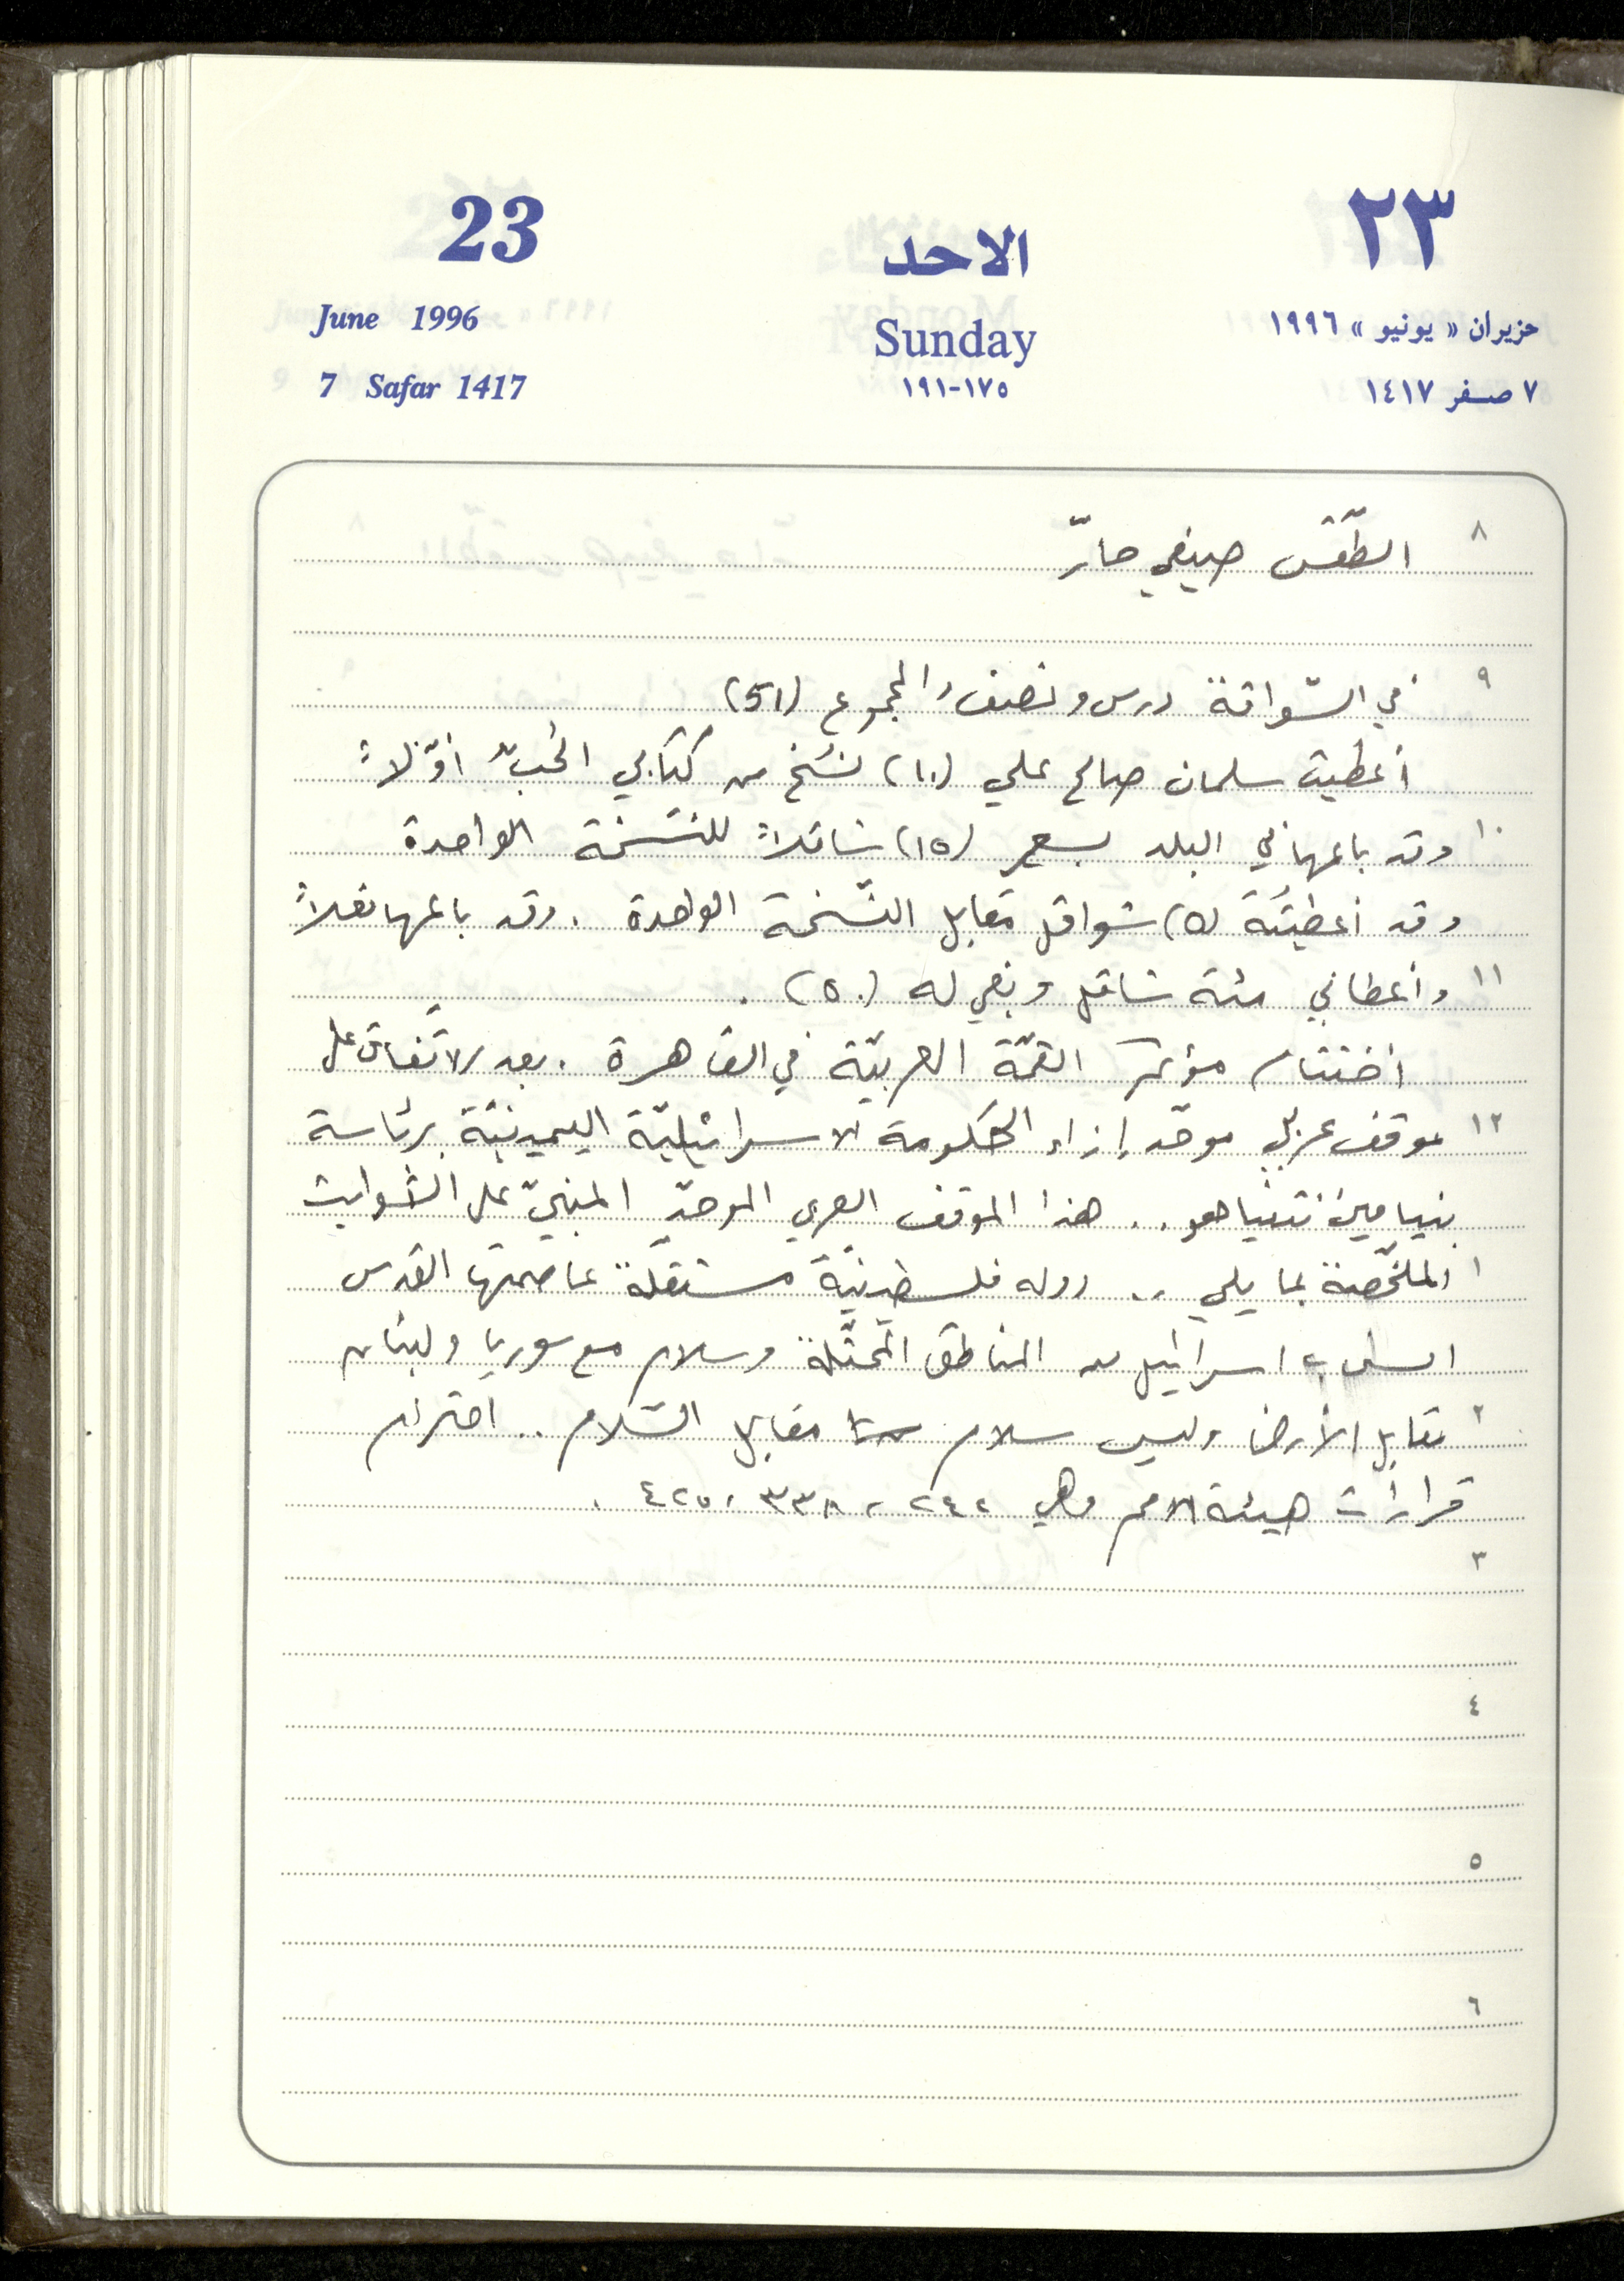 23
الاحد
٢٣
June 1996
Sunday
حزيران « يونيو » ١٩٩٦
7 Safar 1417
١٧٥-١٩١
٧ صفر ١٤١٧
٨
الطّقس صيفي حارّ
٩
في السّواقة درس ونصف والمجموع (51)
أعطيت سلمان صالح علي (١٠) نسَخ من كتابي الحُبّ أوّلاً
١٠
وقد باعها في البلد بسعر (١٥) شاقلاً للنّسْخة الواحدة
وقد أعطيتُهُ (٥) شواقل مقابل النّسْخة الواحدة . وقد باعها فعلاً
١١
وأعطاني مئة شاقل وبقي له (٥٠) .
أختتام مؤتمر القمّة العربيّة في القاهرة . بعد الاتّفاق على
١٢
موقف عربيّ موحّد إزاء الحكومة الاسرائيليّة اليمينيّة برئاسة
بنيامين نتنياهو .. هذا الموقف العربي الموحّد المبنيّ على الثّوابت
١
الملخّصة بما يلي .. دوله فلسطينيّة مستقلّة عاصمتها القدس
انسحاب اسرائيل من المناطق المحتلّة وسلام مع سوريا ولبنان
٢
مقابل الأرض وليس سلام مقابل السّلام .. احترام
قرارات هيئة الامم وهي ٢٤٢ ، ٣٣٨ ، ٤٢٥ .
٣
٤
٥
٦